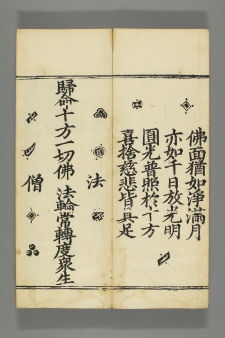 佛面猶如淨滿月
亦如千日放光明
圓光普照於十方
喜捨慈悲皆具足
法
歸命十方一切佛 法輪常轉度衆生
僧